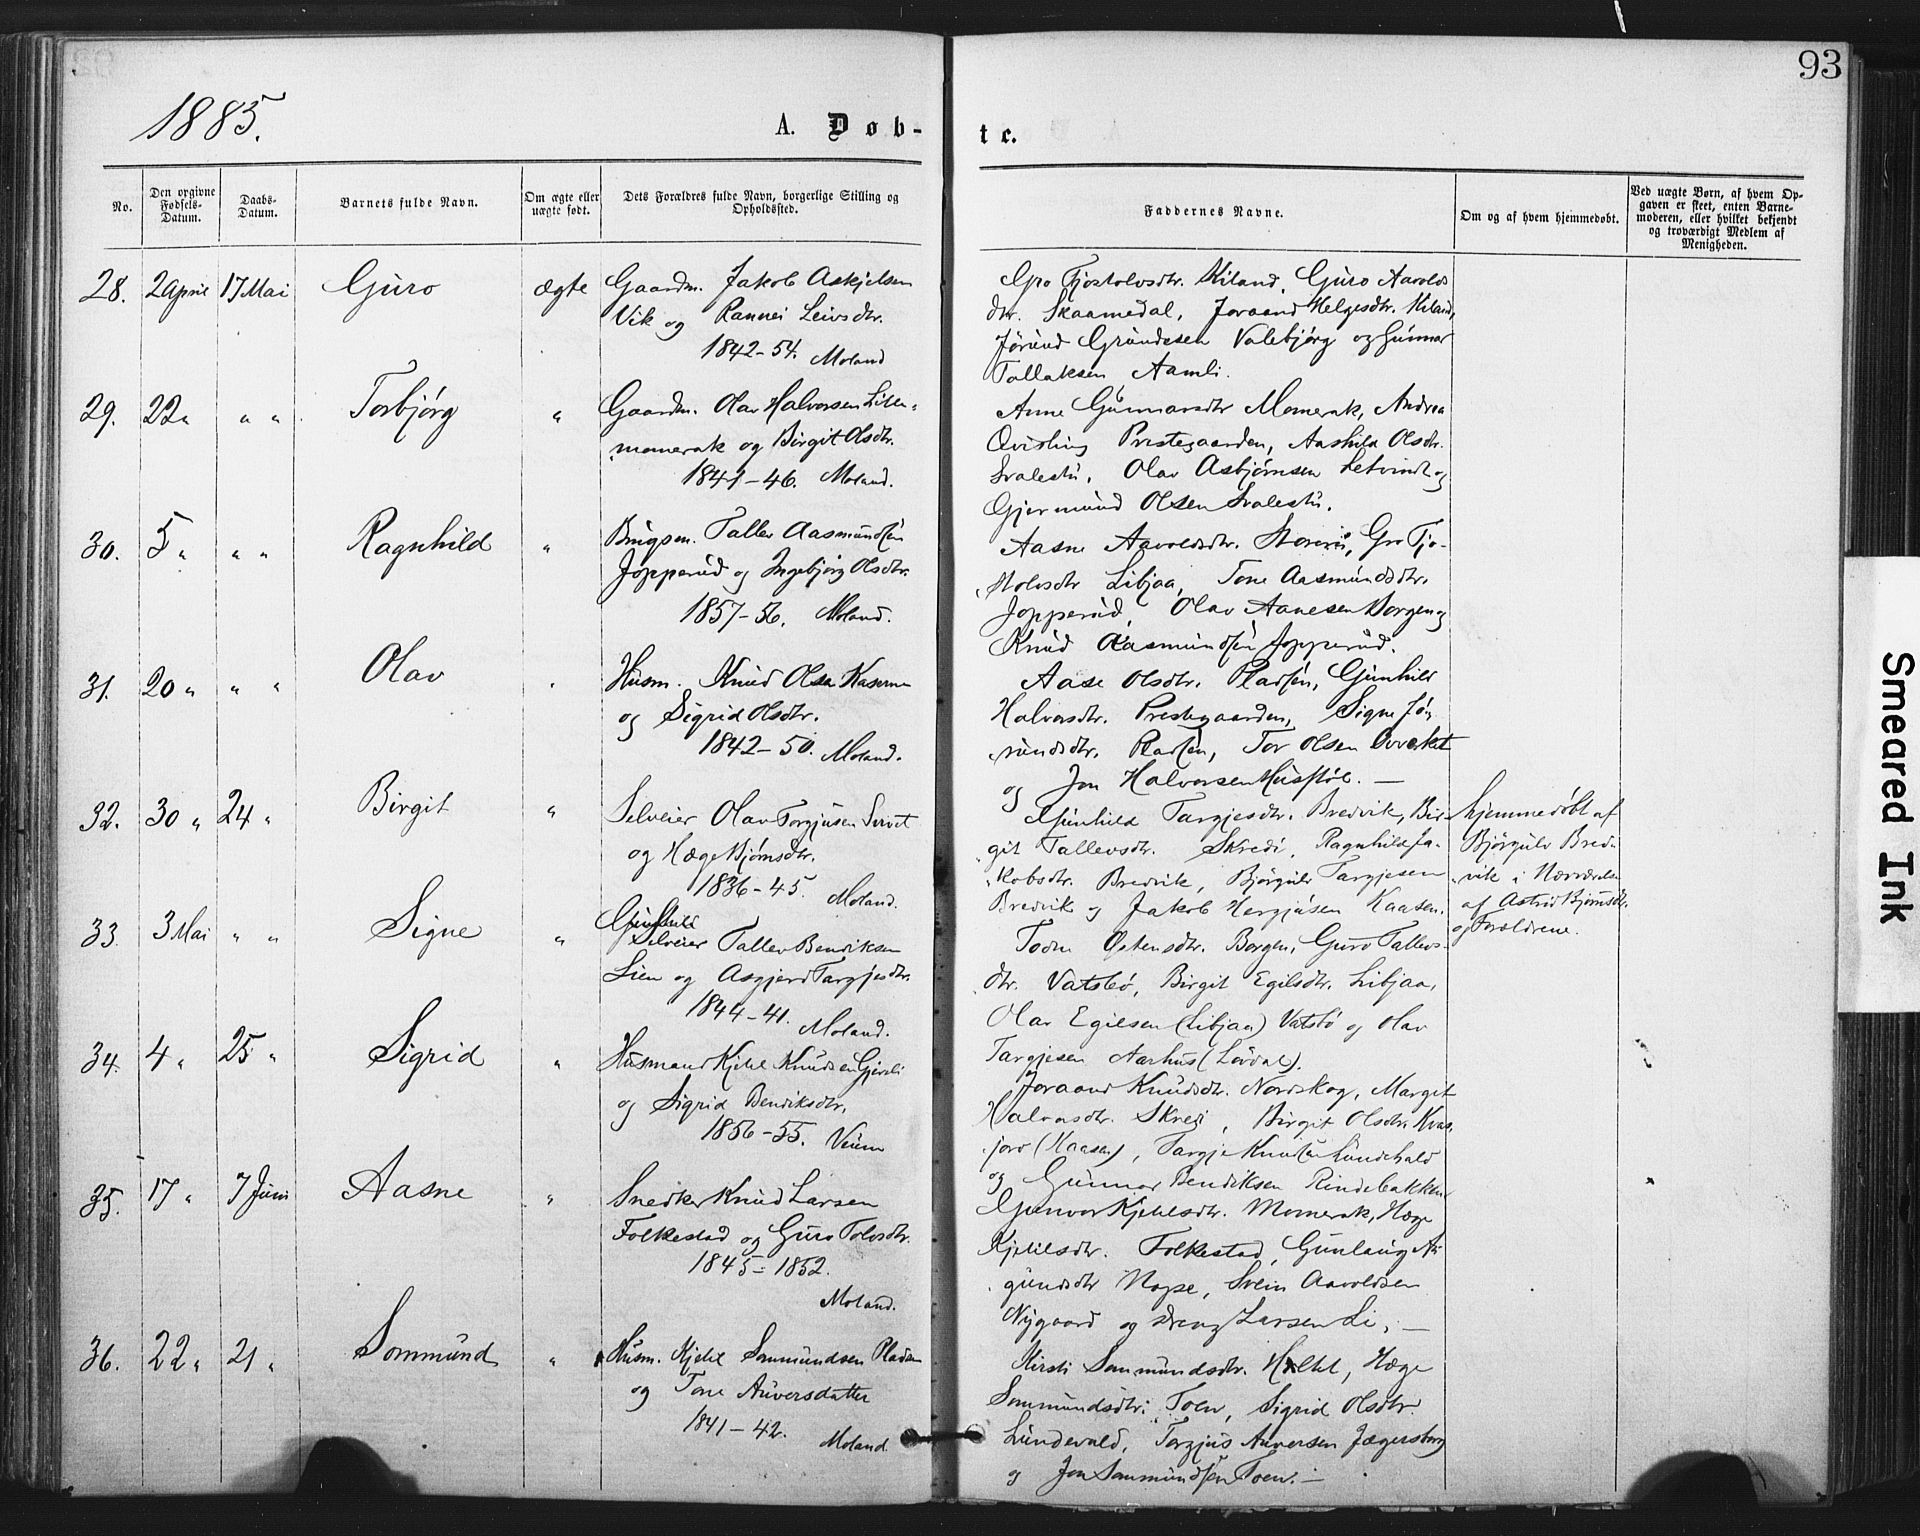 93
1885.
A. Døb-
te.
No.
Den opgivne Fødsels-Datum.
Daabs-Datum.
Barnets fulde Navn.
Om ægte eller uægte født.
Dets Forældres fulde Navn, borgerlige Stilling og Opholdssted.
Faddernes Navne.
Om og af hvem hjemmedøbt.
Ved uægte Børn, af hvem Opgaven er skeet, enten Barnemoderen, eller hvilket bekjendt og troværdigt Medlem af Menigheden.
28. 2 April 17 Mai Guro ægte Gaardm. Jakob Askjelsen
Vik og Rannei Leivsdtr.
1842-54. Moland
Gro Fjostolvsdtr. Kiland, Guro Aavolds
dtr. Skaamedal, Joraand Helgesdtr. Kiland,
Jørund Grundesen Valebjørg og Gunnar
Tallaksen Aamli.
29. 22 " " " Torbjørg " Gaardm. Olav Halvorsen Litle-
momerak og Birgit Olsdtr.
1841-46. Moland.
Anne Gunnarsdtr Momerak, Andrea
Qvisling Prestegaarden, Aashild Olsdtr.
Svalestu, Olav Asbjørnsen og
Gjermund Olsen Svalestu.
30. 5 " " " Ragnhild " Brugsm. Tallev Aasmundsen
Jopperud og Ingebjørg Olsdtr.
1857-56. Moland.
Aasne Aavoldsdtr. Gro Fjo-
stolvsdtr Libjaa, Tone Aasmundsdtr.
Jopperud, Olav Aanesen Borgen og
Knud Aasmundsen Jopperud.
31. 20 " " " Olav " Husm. Knud Olsen Kaserne
og Sigrid Olsdtr.
1842-50. Moland.
Aase Olsdtr. Pladsen, Gunhild
Halvorsdtr. Prestegaarden, Signe Jø-
rundsdtr. Pladsen, Tor Olsen
og Jon Halvorsen Husstøl. —
32. 30 " 24 " Birgit " Selveier Olav Torgjusen
og Hæge Bjørnsdtr.
1836-45. Moland.
Gunhild Targjesdtr. Bredvik, Bir-
git Tallevsdtr. Skredi, Ragnhild Ja-
kobsdtr. Bredvik, Bjørgulv Targjesen
Bredvik og Jakob Hergjusen Kaasen.
hjemmedøbt af
Bjørgulv Bred-
vik i Nærværelse
af Astrid Bjørnsdtr.
og Forældrene.
33. 3 Mai " " Signe " Selveier Tallev Bendiksen
Lien og Asgjerd Targjesdtr.
1844-41. Moland.
Østensdtr. Borgen, Guro Tallevs-
dtr. Vatsbø, Birgit Egilsdtr. Libjaa,
Olav Egilsen (Libjaa) Vatsbø og Olav
Targjesen Aarhus (Løvdal).
34. 4 " 25 " Sigrid " Husmand Kjetil Knudsen
og Sigrid Bendiksdtr.
1856-55. Veum
Joraand Knudsdtr. Nordskog, Margit
Halvorsdtr. Skredi, Birgit Olsdtr. Kvas-
jord (Haasen), Targje Knutsen Lundevald
og Gunnar Bendiksen Rindebakken.
35. 17 " 7 Juni Aasne " Snedker Knud Larsen
Folkestad og Guro Tolvsdtr.
1845-1852.
Moland.
Gunvor Kjetilsdtr. Momerak, Hæge
Kjetilsdtr. Folkestad, Gunlaug Au-
gundsdtr Napse, Svein Aavoldsen
Nygaard og Dreng Larsen Li, —
36. 22 " 21 " Sommund " Husm. Kjetil Sommundsen Pladsen
og Tone Auversdatter
1841-42. Moland
Kirsti Sommundsdtr. Hæge
Sommundsdtr. Toen, Sigrid Olsdtr.
Lundevald, Torgjus Auversen Jægersborg
og Jon Sommundsen Toen. —
Smeared Ink